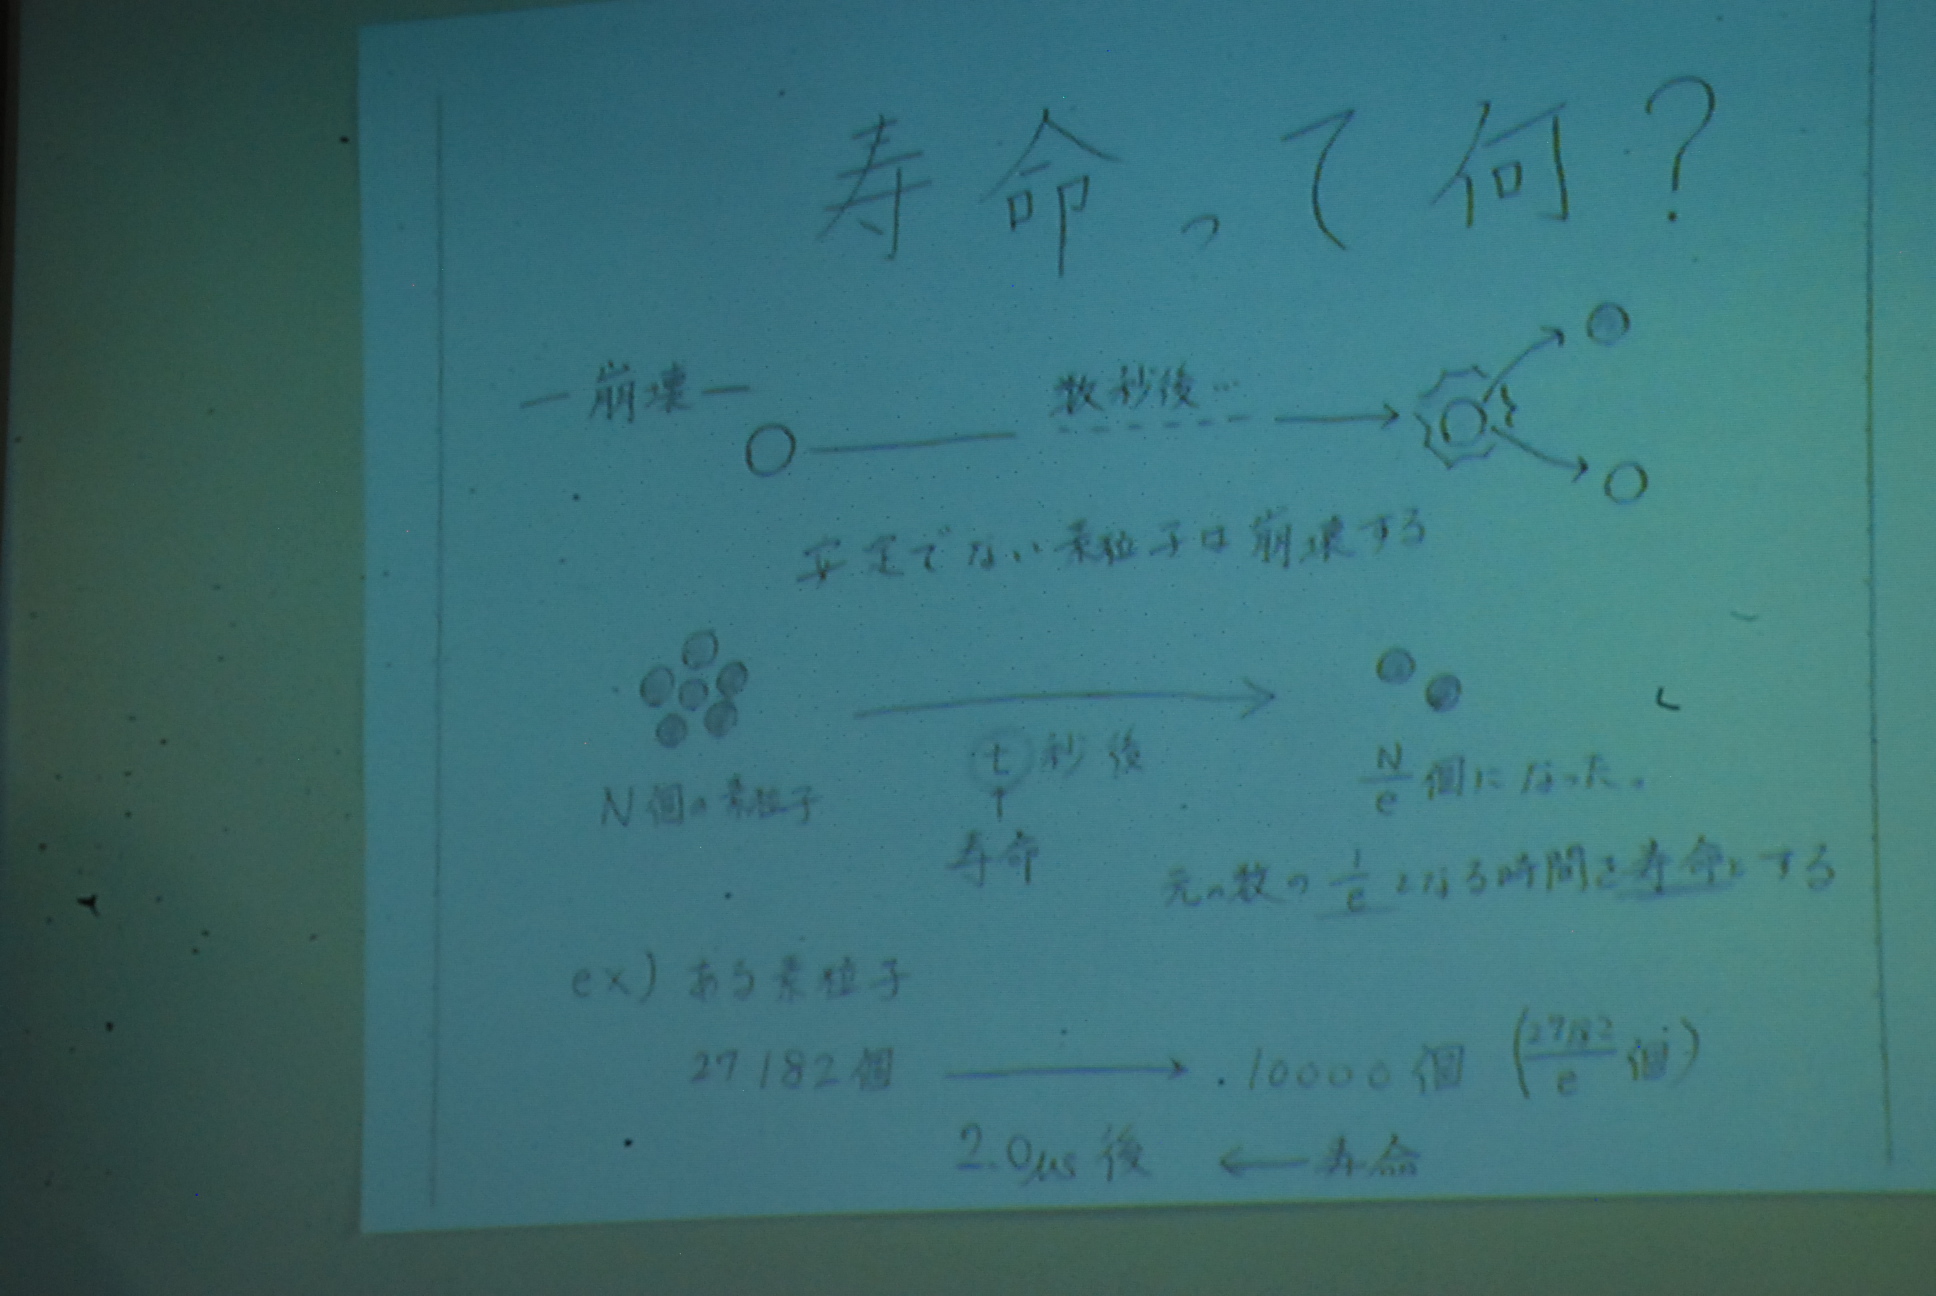 寿命って何?
ー崩壊ー
数秒後…
安定でない素粒子は崩壊する
N個の素粒子
t秒後
↑
寿命
N/e 個になった。
元の数の 1/e となる時間を寿命とする
ex) ある素粒子
27182個 → 10000個 (27182/e 個)
2.0μs後 ← 寿命